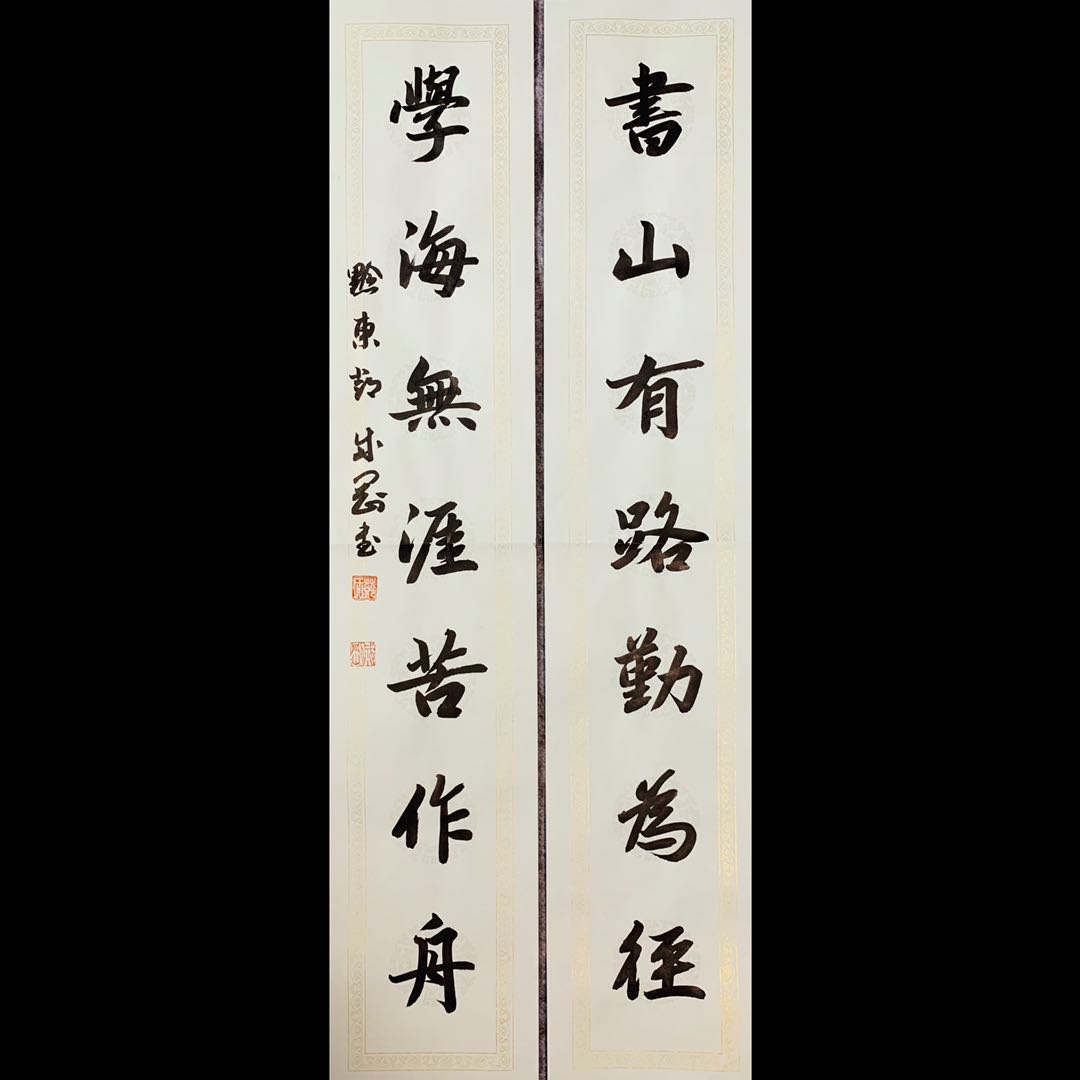 書山有路勤為徑
學海無涯苦作舟
黔東鄧成剛書